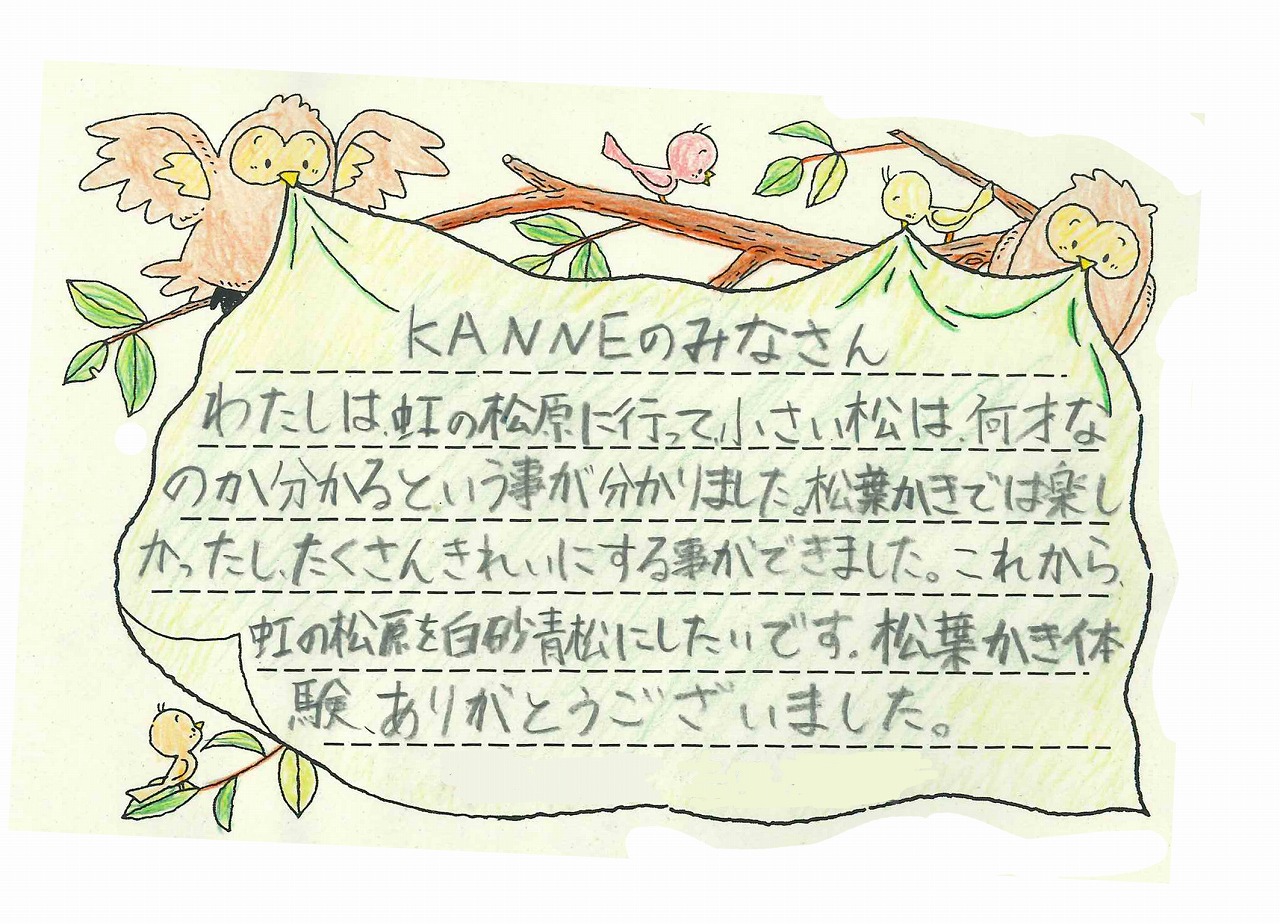 KANNEのみなさん
わたしは、虹の松原に行って、小さい松は、何才な
のか分かるという事が分かりました。松葉かきでは楽し
かったし、たくさんきれいにする事ができました。これから、
虹の松原を白砂青松にしたいです。松葉かき体
験、ありがとうございました。